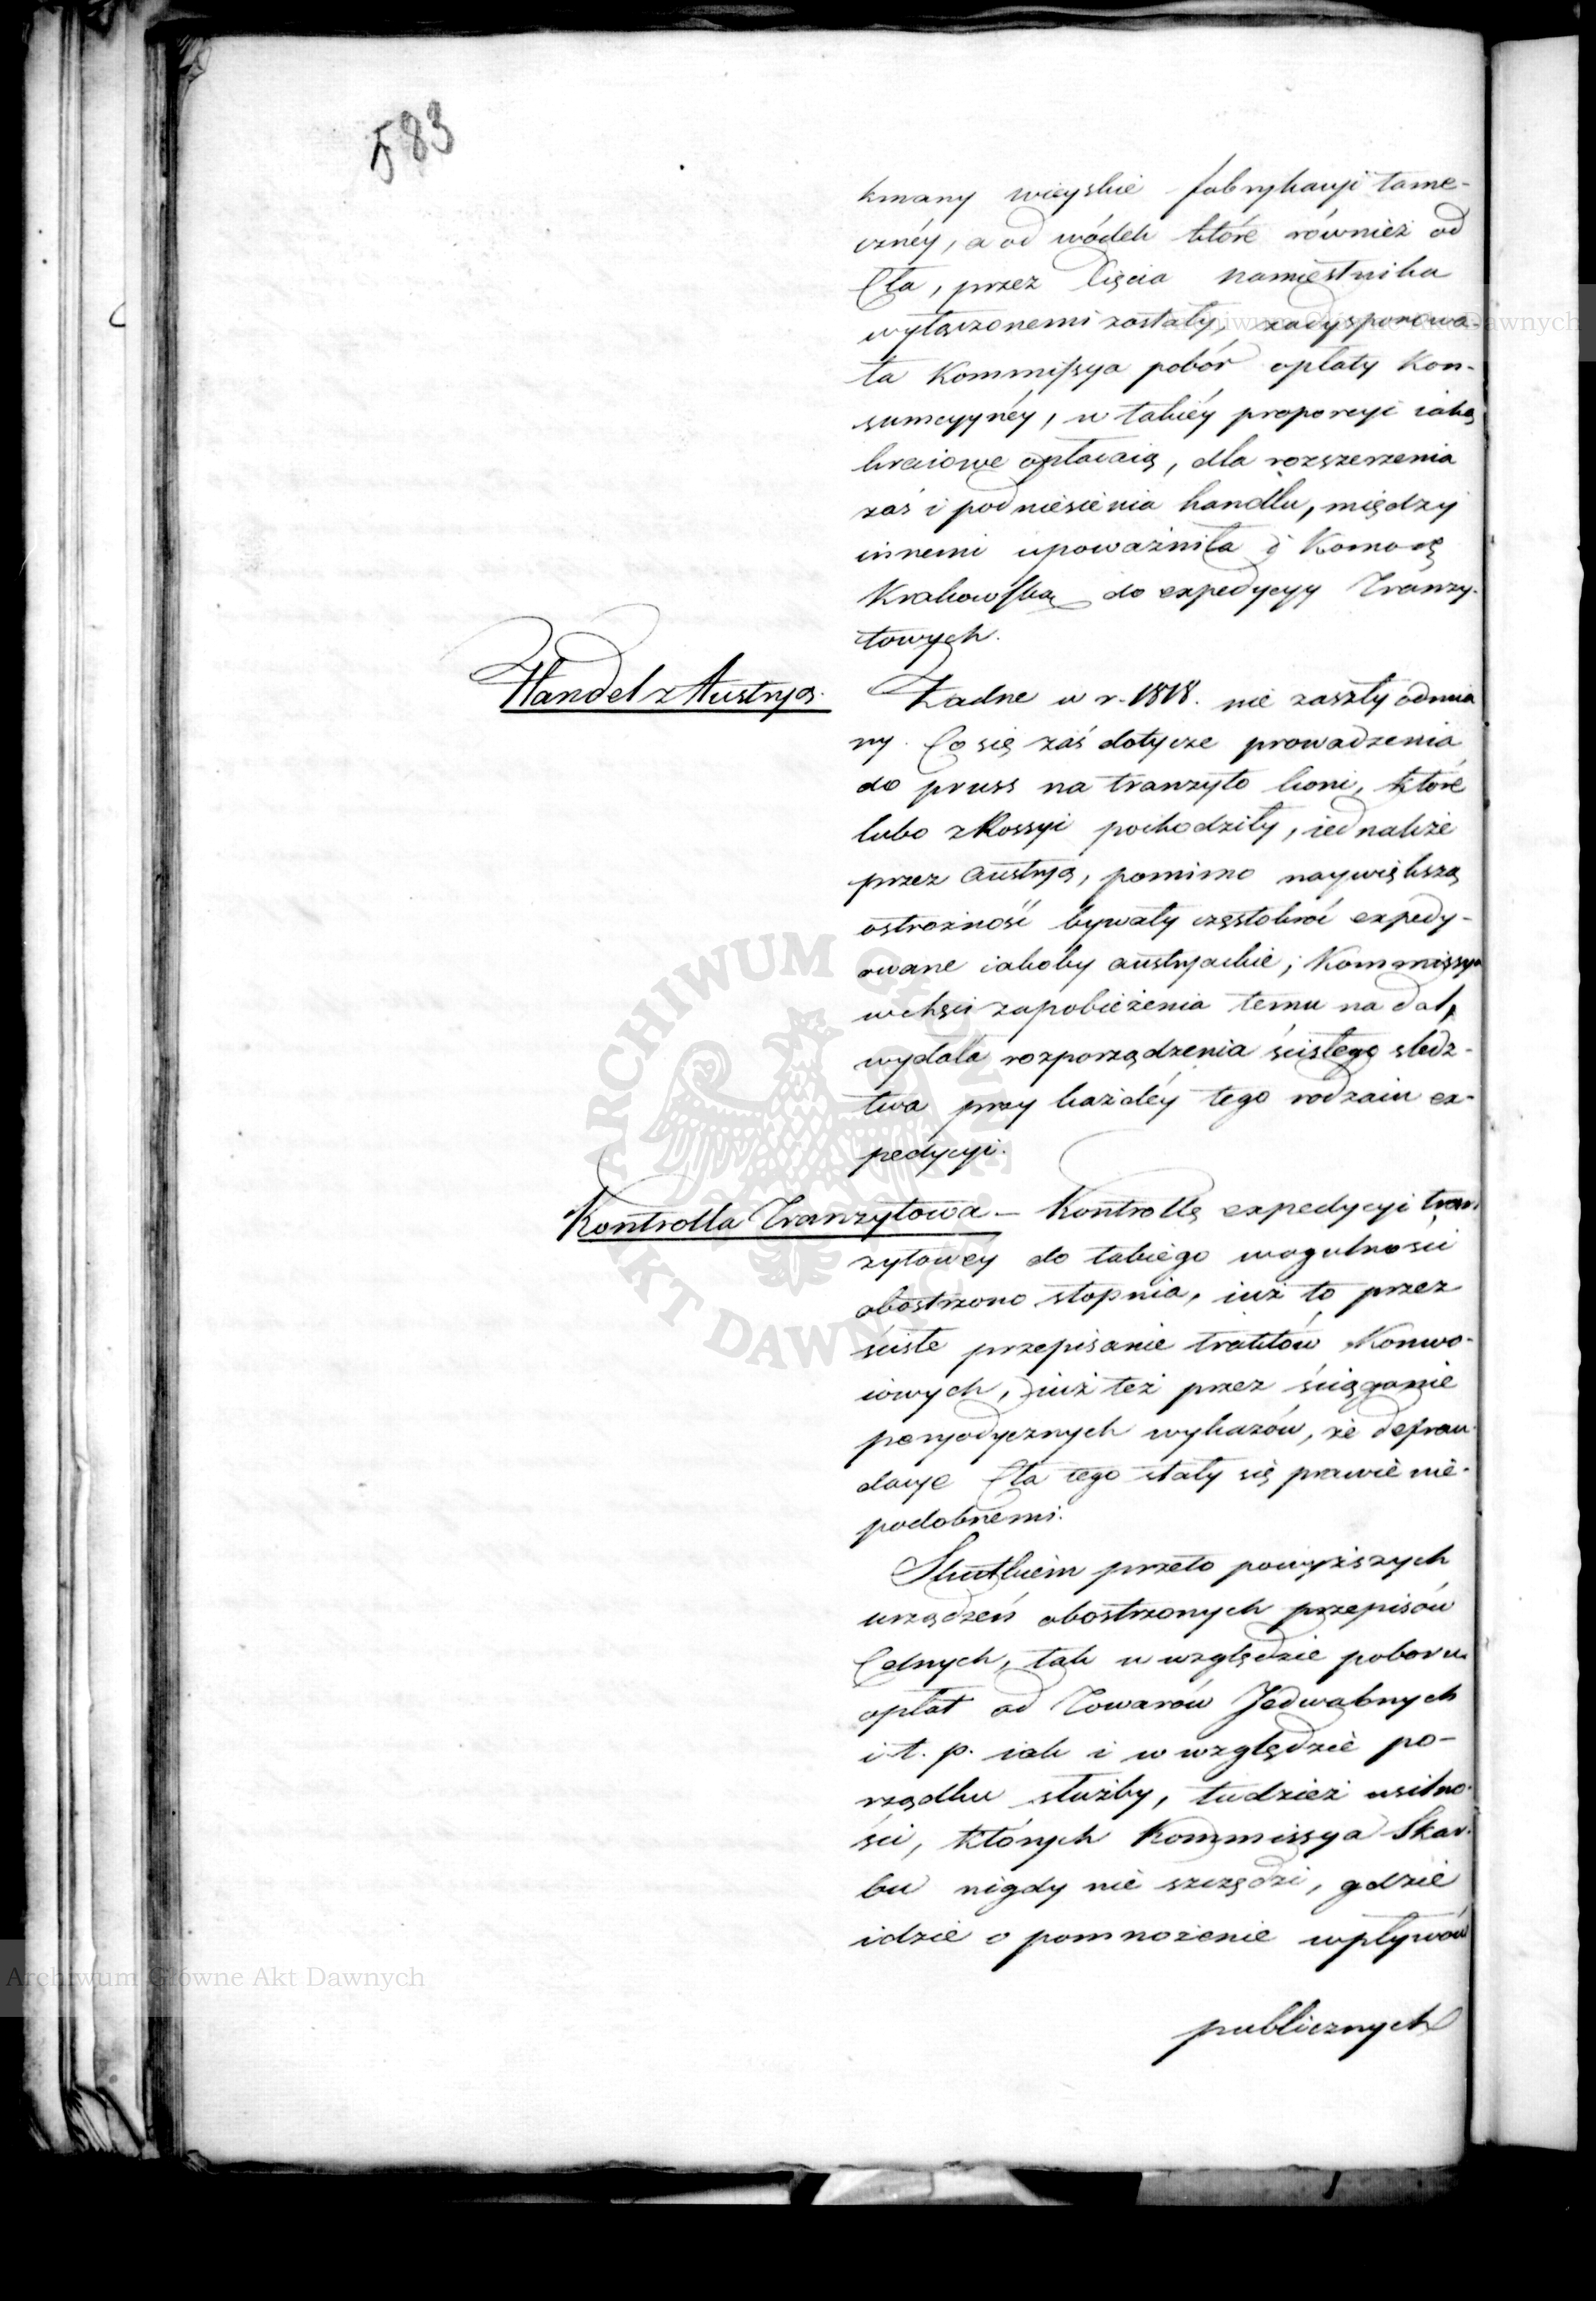 583
kmany wieyskie fabrykacyi tame-
cznéy, a od wódek które również od
Cła, przez Xięcia Namiestnika
wyłączonemi zostały, zadysponowa-
ła Kommissya pobór opłaty Kon-
sumcyynéy, w takiéy proporcyi iaką
kraiowe opłacaią, dla rozszerzenia
zaś i podniesienia handlu, między
innemi upoważniła i Komorę
Krakowską do expedycyy Tranzy-
towych.
Handel z Austryą.
Żadne w r. 1818. nie zaszły odmia
ny. Co się zaś dotycze prowadzenia
do pruss na tranzyto koni, które
lubo z Rossyi pochodziły, iednakże
przez Austryą, pomimo naywiększą
ostrożność bywały częstokroć expedy-
owane iakoby austryackie; Kommissya
w chęci zapobieżenia temu na dal,
wydała rozporządzenia ścisłego śledz-
twa przy każdéy tego rodzaiu ex-
pedycyi.
Kontrolla Tranzytowa – Kontrollę expedycyi tran
zytowey do takiego wogulności
obostrzono stopnia, iuż to przez
ścisłe przepisanie traktów Konwo-
iowych, iuż też przez ściąganie
peryodycznych wykazów, że defrau-
dacye Cła tego stały się prawie nie-
podobnemi.
Skutkiem przeto powyższych
urządzeń obostrzonych przepisów
Celnych, tak w względzie poboru
opłat od Towarów Jedwabnych
i t. p. iak i w względzie po-
rządku służby, tudzież usilno-
ści, których Kommissya Skar-
bu nigdy nie szczędzi, gdzie
idzie o pomnożenie wpływów
publicznych
Archiwum Główne Akt Dawnych
Archiwum Główne Akt Dawnych
ARCHIWUM GŁÓWNE AKT DAWNYCH